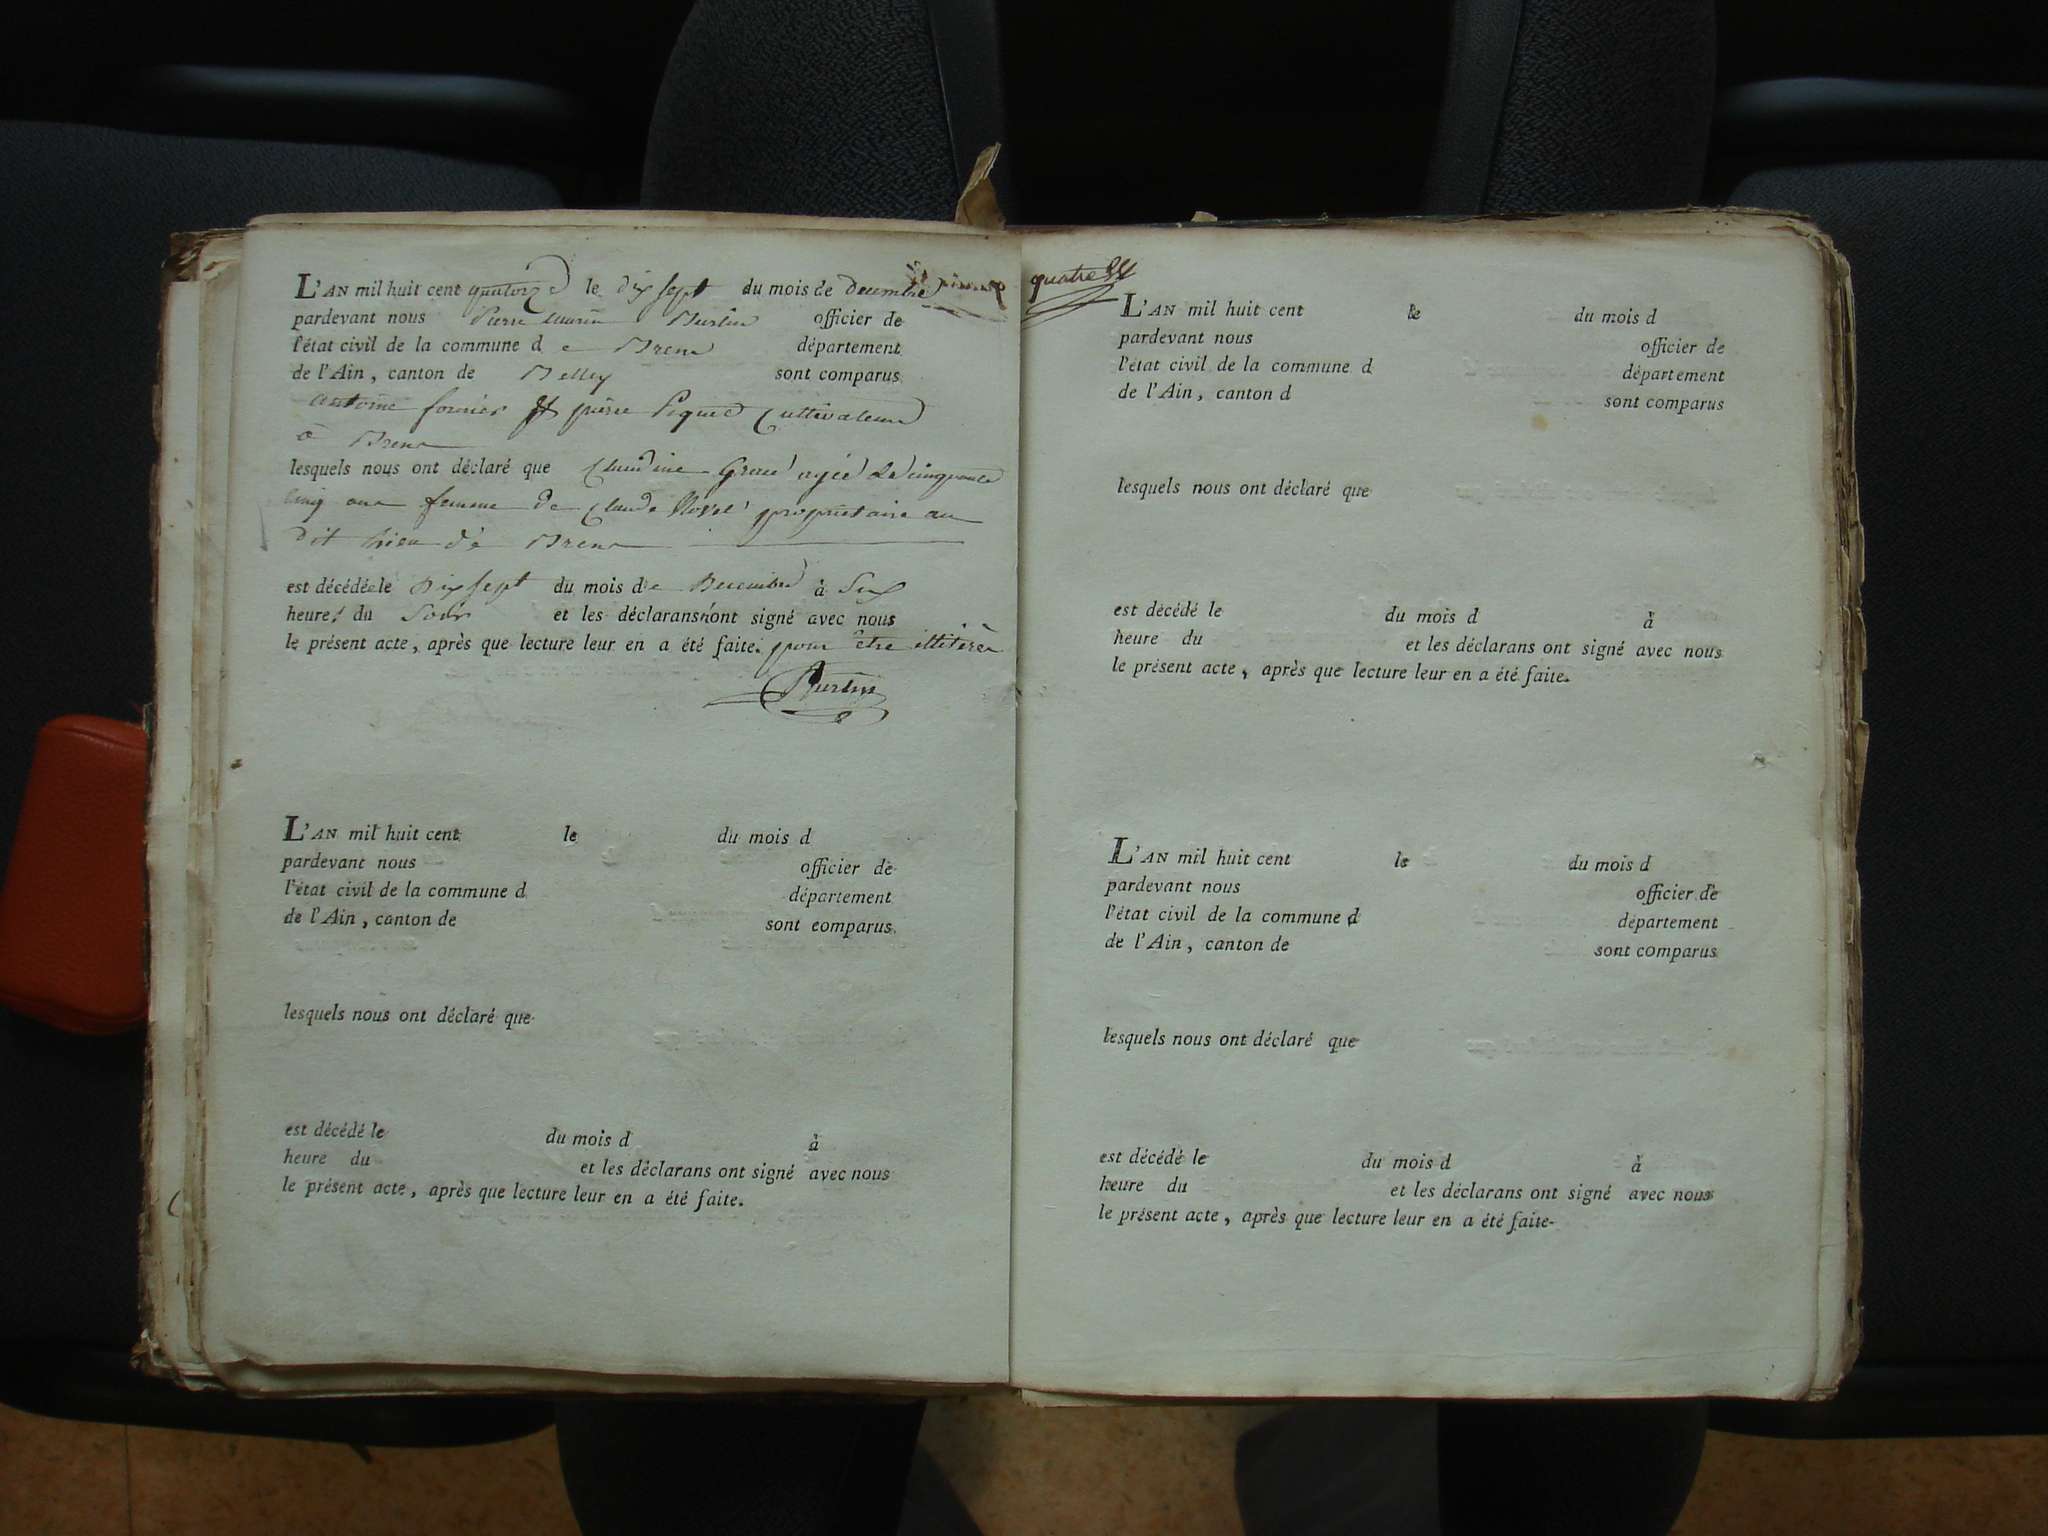 L'AN mil huit cent quatorze le dix sept du mois de decembre
pardevant nous Pierre officier de
l'état civil de la commune d e Brens département
de l'Ain, canton de Belley sont comparus
antoine fournier et pierre Cultivateurs
à Brens
lesquels nous ont déclaré que Claudine agée de cinquante
cinq ans femme de Claude propriétaire au
dit lieu de Brens
est décédée le dix sept du mois de Decembre à Six
heures du Soir et les déclarans n'ont signé avec nous
le présent acte, après que lecture leur en a été faite. pour être illitérés
L'AN mil huit cent le du mois d
pardevant nous officier de
l'état civil de la commune d département
de l'Ain, canton de sont comparus
lesquels nous ont déclaré que
est décédé le du mois d à
heure du et les déclarans ont signé avec nous
le présent acte, après que lecture leur en a été faite.
quatre
L'AN mil huit cent le du mois d
pardevant nous officier de
l'état civil de la commune d département
de l'Ain, canton d sont comparus
lesquels nous ont déclaré que
est décédé le du mois d à
heure du et les déclarans ont signé avec nous
le présent acte, après que lecture leur en a été faite.
L'AN mil huit cent le du mois d
pardevant nous officier de
l'état civil de la commune d département
de l'Ain, canton de sont comparus
lesquels nous ont déclaré que
est décédé le du mois d à
heure du et les déclarans ont signé avec nous
le présent acte, après que lecture leur en a été faite.